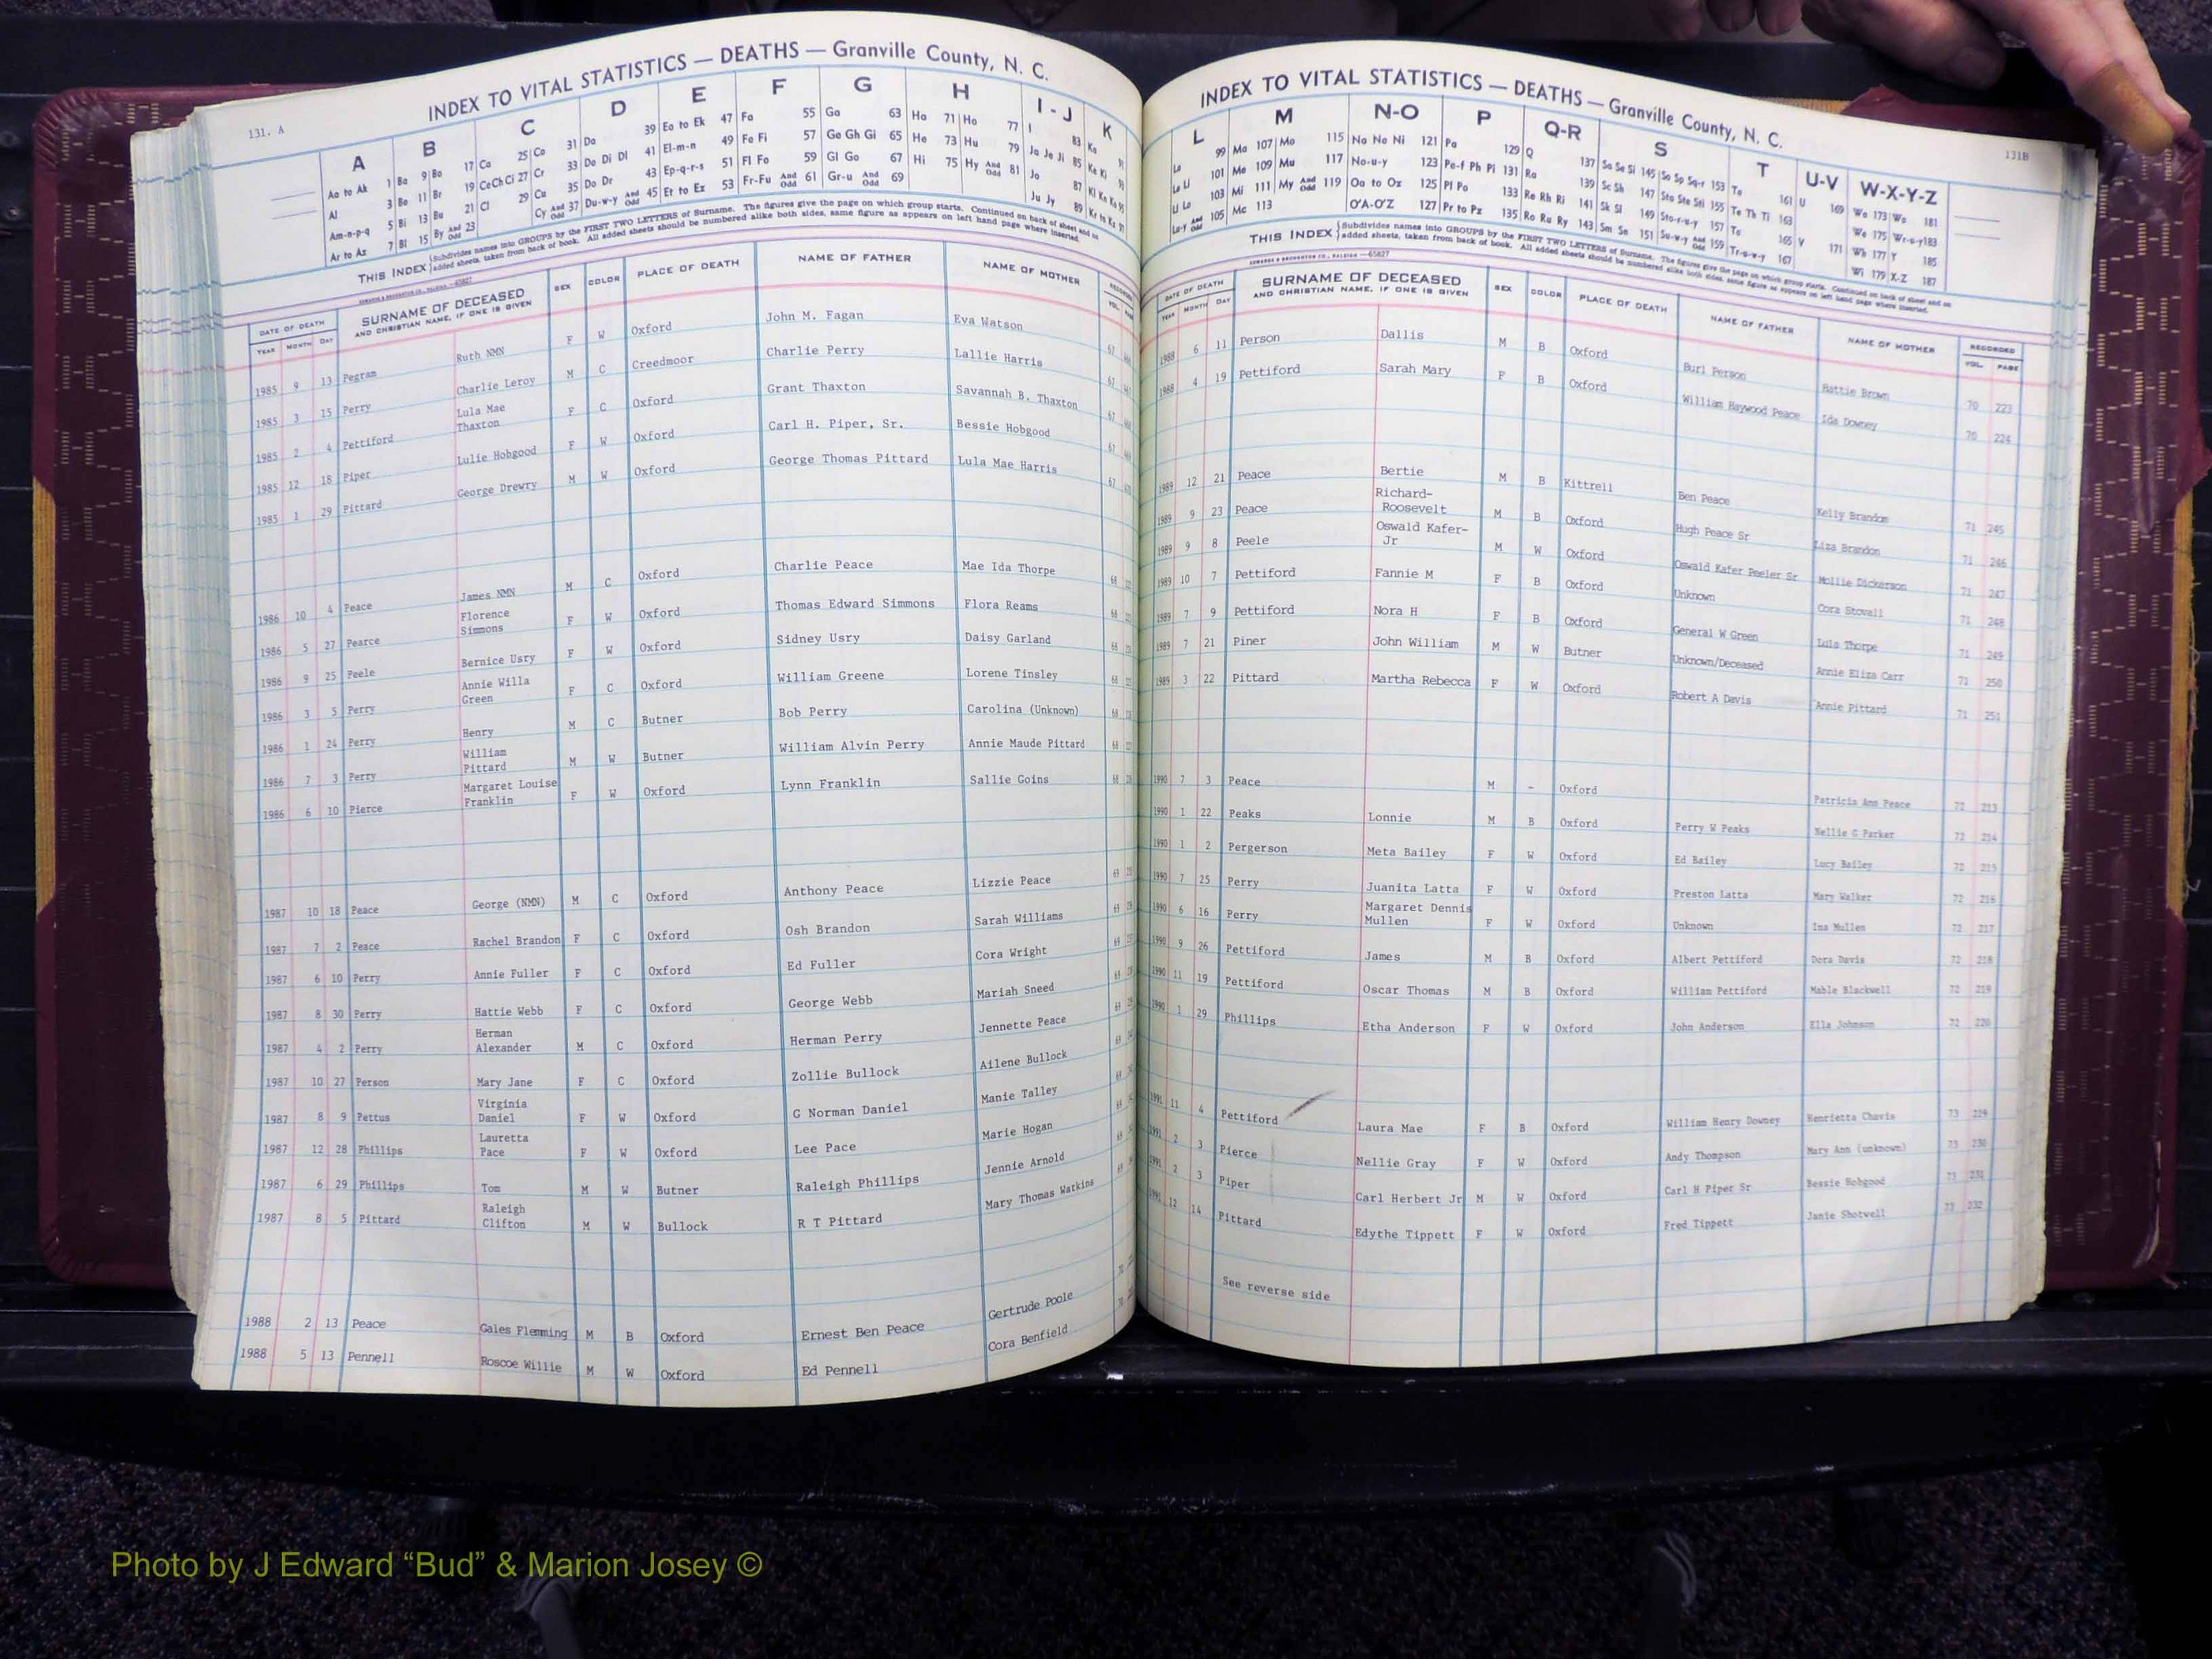 131. A
INDEX TO VITAL STATISTICS — DEATHS — Granville County, N. C.
A B C D E F G H I - J K
Aa to Ak 1 Ba 9 Bo 17 Ca 25 Co 31 Da 39 Ea to Ek 47 Fa 55 Ga 63 Ha 71 Ho 77 I 83 Ka
Al 3 Be 11 Br 19 Ce Ch Ci 27 Cr 33 De Di Dl 41 El-m-n 49 Fe Fi 57 Ge Gh Gi 65 He 73 Hu 79 Ja Je Ji 85 Ke Ki
Am-n-p-q 5 Bi 13 Bu 21 Cl 29 Cu 35 Do Dr 43 Ep-q-r-s 51 Fl Fo 59 Gl Go 67 Hi 75 Hy And Odd 81 Jo 87 Kl Kn Ko
Ar to Az 7 Bl 15 By And Odd 23 Cy And Odd 37 Du-w-y And Odd 45 Et to Ez 53 Fr-Fu And Odd 61 Gr-u And Odd 69 Ju Jy 89 Kr to Kz
THIS INDEX Subdivides names into GROUPS by the FIRST TWO LETTERS of Surname. The figures give the page on which group starts. Continued on back of sheet and on
added sheets, taken from back of book. All added sheets should be numbered alike both sides, same figure as appears on left hand page where inserted.
DATE OF DEATH SURNAME OF DECEASED SEX COLOR PLACE OF DEATH NAME OF FATHER NAME OF MOTHER
YEAR MONTH DAY AND CHRISTIAN NAME, IF ONE IS GIVEN
1985 9 13 Pegram Ruth NMN F W Oxford John M. Fagan Eva Watson 67
1985 3 15 Perry Charlie Leroy M C Creedmoor Charlie Perry Lallie Harris 67
1985 2 4 Pettiford Lula Mae Thaxton F C Oxford Grant Thaxton Savannah B. Thaxton 67
1985 12 18 Piper Lulie Hobgood F W Oxford Carl H. Piper, Sr. Bessie Hobgood 67
1985 1 29 Pittard George Drewry M W Oxford George Thomas Pittard Lula Mae Harris 67
1986 10 4 Peace James NMN M C Oxford Charlie Peace Mae Ida Thorpe 68
1986 5 27 Pearce Florence Simmons F W Oxford Thomas Edward Simmons Flora Reams 68
1986 9 25 Peele Bernice Usry F W Oxford Sidney Usry Daisy Garland 68
1986 3 5 Perry Annie Willa Green F C Oxford William Greene Lorene Tinsley 68
1986 1 24 Perry Henry M C Butner Bob Perry Carolina (Unknown) 68
1986 7 3 Perry William Pittard M W Butner William Alvin Perry Annie Maude Pittard 68
1986 6 10 Pierce Margaret Louise Franklin F W Oxford Lynn Franklin Sallie Goins 68
1987 10 18 Peace George (NMN) M C Oxford Anthony Peace Lizzie Peace 69
1987 7 2 Peace Rachel Brandon F C Oxford Osh Brandon Sarah Williams 69
1987 6 10 Perry Annie Fuller F C Oxford Ed Fuller Cora Wright 69
1987 8 30 Perry Hattie Webb F C Oxford George Webb Mariah Sneed 69
1987 4 2 Perry Herman Alexander M C Oxford Herman Perry Jennette Peace 69
1987 10 27 Person Mary Jane F C Oxford Zollie Bullock Ailene Bullock 69
1987 8 9 Pettus Virginia Daniel F W Oxford G Norman Daniel Manie Talley 69
1987 12 28 Phillips Lauretta Pace F W Oxford Lee Pace Marie Hogan 69
1987 6 29 Phillips Tom M W Butner Raleigh Phillips Jennie Arnold 69
1987 8 5 Pittard Raleigh Clifton M W Bullock R T Pittard Mary Thomas Watkins
1988 2 13 Peace Gales Flemming M B Oxford Ernest Ben Peace Gertrude Poole 70
1988 5 13 Pennell Roscoe Willie M W Oxford Ed Pennell Cora Benfield 70
131B
INDEX TO VITAL STATISTICS — DEATHS — Granville County, N. C.
L M N-O P Q-R S T U-V W-X-Y-Z
La 99 Ma 107 Mo 115 Na Ne Ni 121 Pa 129 Q 137 Sa Se Si 145 So Sp Sq-r 153 Ta 161 U 169 Wa 173 Wo 181
Le Li 101 Me 109 Mu 117 No-u-y 123 Pe-f Ph Pi 131 Ra 139 Sc Sh 147 Sta Ste Sti 155 Te Th Ti 163 We 175 Wr-u-y 183
Ll Lo 103 Mi 111 My And Odd 119 Oa to Oz 125 Pl Po 133 Re Rh Ri 141 Sk Sl 149 Sto-r-u-y 157 To 165 V 171 Wh 177 Y 185
Lu-y And Odd 105 Mc 113 O'A-O'Z 127 Pr to Pz 135 Ro Ru Ry 143 Sm Sn 151 Su-w-y And Odd 159 Tr-u-w-y 167 Wi 179 X-Z 187
THIS INDEX Subdivides names into GROUPS by the FIRST TWO LETTERS of Surname. The figures give the page on which group starts. Continued on back of sheet and on
added sheets, taken from back of book. All added sheets should be numbered alike both sides, same figure as appears on left hand page where inserted.
DATE OF DEATH SURNAME OF DECEASED SEX COLOR PLACE OF DEATH NAME OF FATHER NAME OF MOTHER RECORDED
YEAR MONTH DAY AND CHRISTIAN NAME, IF ONE IS GIVEN VOL. PAGE
1988 6 11 Person Dallis M B Oxford Buri Person Hattie Brown 70 223
1988 4 19 Pettiford Sarah Mary F B Oxford William Haywood Peace Ida Downey 70 224
1989 12 21 Peace Bertie M B Kittrell Ben Peace Kelly Brandon 71 245
1989 9 23 Peace Richard- Roosevelt M B Oxford Hugh Peace Sr Liza Brandon 71 246
1989 9 8 Peele Oswald Kafer- Jr M W Oxford Oswald Kafer Peeler Sr Mollie Dickerson 71 247
1989 10 7 Pettiford Fannie M F B Oxford Unknown Cora Stovall 71 248
1989 7 9 Pettiford Nora H F B Oxford General W Green Lula Thorpe 71 249
1989 7 21 Piner John William M W Butner Unknown/Deceased Annie Eliza Carr 71 250
1989 3 22 Pittard Martha Rebecca F W Oxford Robert A Davis Annie Pittard 71 251
1990 7 3 Peace M - Oxford Patricia Ann Peace 72 213
1990 1 22 Peaks Lonnie M B Oxford Perry W Peaks Nellie G Parker 72 214
1990 1 2 Pergerson Meta Bailey F W Oxford Ed Bailey Lucy Bailey 72 215
1990 7 25 Perry Juanita Latta F W Oxford Preston Latta Mary Walker 72 216
1990 6 16 Perry Margaret Dennis Mullen F W Oxford Unknown Ina Mullen 72 217
1990 9 26 Pettiford James M B Oxford Albert Pettiford Dora Davis 72 218
1990 11 19 Pettiford Oscar Thomas M B Oxford William Pettiford Mable Blackwell 72 219
1990 1 29 Phillips Etha Anderson F W Oxford John Anderson Ella Johnson 72 220
1991 11 4 Pettiford Laura Mae F B Oxford William Henry Downey Henrietta Chavis 73 229
1991 2 3 Pierce Nellie Gray F W Oxford Andy Thompson Mary Ann (unknown) 73 230
1991 2 3 Piper Carl Herbert Jr M W Oxford Carl H Piper Sr Bessie Hobgood 73 231
1991 12 14 Pittard Edythe Tippett F W Oxford Fred Tippett Janie Shotwell 73 232
See reverse side
Photo by J Edward “Bud” & Marion Josey ©